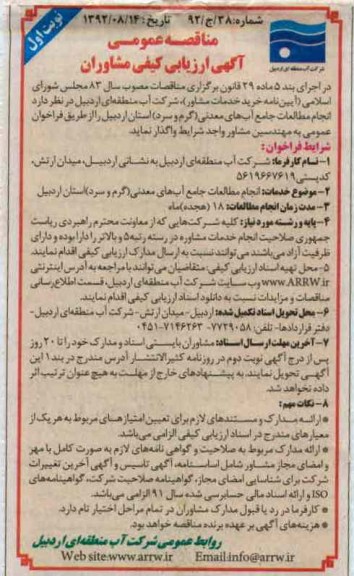 شماره: ۳۸/ج/۹۲ تاریخ: ۱۳۹۲/۰۸/۱۴
نوبت اول
مناقصه عمومی
آگهی ارزیابی کیفی مشاوران
شرکت آب منطقه‌ای اردبیل
در اجرای بند ۵ ماده ۲۹ قانون برگزاری مناقصات مصوب سال ۸۳ مجلس شورای
اسلامی (آیین‌نامه خرید خدمات مشاور)، شرکت آب منطقه‌ای اردبیل در نظر دارد
انجام مطالعات جامع آب‌های معدنی (گرم و سرد) استان اردبیل را از طریق فراخوان
عمومی به مهندسین مشاور واجد شرایط واگذار نماید.
شرایط فراخوان:
۱- نام کارفرما: شرکت آب منطقه‌ای اردبیل به نشانی اردبیل، میدان ارتش،
کدپستی ۵۶۱۹۶۶۷۶۱۹
۲- موضوع خدمات: انجام مطالعات جامع آب‌های معدنی (گرم و سرد) استان اردبیل
۳- مدت زمان انجام مطالعات: ۱۸ (هجده) ماه
۴- پایه و رشته مورد نیاز: کلیه شرکت‌هایی که از معاونت محترم راهبردی ریاست
جمهوری صلاحیت انجام خدمات مشاوره در رسته رتبه ۵ و بالاتر را دارا بوده و دارای
ظرفیت آزاد می‌باشند می‌توانند نسبت به ارسال مدارک ارزیابی کیفی اقدام نمایند.
۵- محل تهیه اسناد ارزیابی کیفی: متقاضیان می‌توانند با مراجعه به آدرس اینترنتی
www.ARRW.ir وب سایت شرکت آب منطقه‌ای اردبیل، قسمت اطلاع‌رسانی
مناقصات و مزایدات نسبت به دانلود اسناد ارزیابی کیفی اقدام نمایند.
۶- محل تحویل اسناد تکمیل شده: اردبیل- میدان ارتش- شرکت آب منطقه‌ای اردبیل-
دفتر قراردادها- تلفن: ۷۷۲۹۰۵۸- ۷۱۴۶۲۶۳-۰۴۵۱
۷- آخرین مهلت ارسال اسناد: مشاوران بایستی اسناد و مدارک خود را تا ۲۰ روز
پس از درج آگهی نوبت دوم در روزنامه کثیرالانتشار به آدرس مندرج در بند ۱ این
آگهی تحویل نمایند. به پیشنهادهای خارج از مهلت به هیچ عنوان ترتیب اثر
داده نخواهد شد.
۸- نکات مهم:
* ارائه مدارک و مستندهای لازم برای تعیین امتیازهای مربوط به هر یک از
معیارهای مندرج در اسناد ارزیابی کیفی الزامی می‌باشد.
* ارائه مدارک مربوط به صلاحیت و گواهی نامه‌های لازم به صورت کامل با مهر
و امضای مجاز مشاور شامل اساسنامه، آگهی تاسیس و آگهی آخرین تغییرات
شرکت برای شناسایی امضای مجاز، گواهینامه صلاحیت شرکت، گواهینامه‌های
ISO و ارائه اسناد مالی حسابرسی شده سال ۹۱ الزامی می‌باشد.
* کارفرما در رد یا قبول مدارک مشاوران در تمام مراحل اختیار تام دارد.
* هزینه‌های آگهی بر عهده برنده مناقصه خواهد بود.
روابط عمومی شرکت آب منطقه‌ای اردبیل
Web site:www.arrw.ir Email:info@arrw.ir